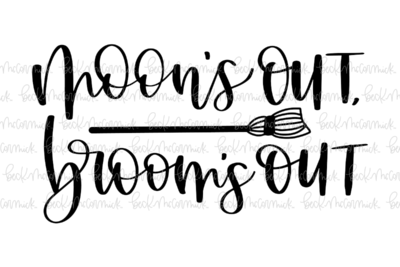 moon's OUT,
broom's OUT